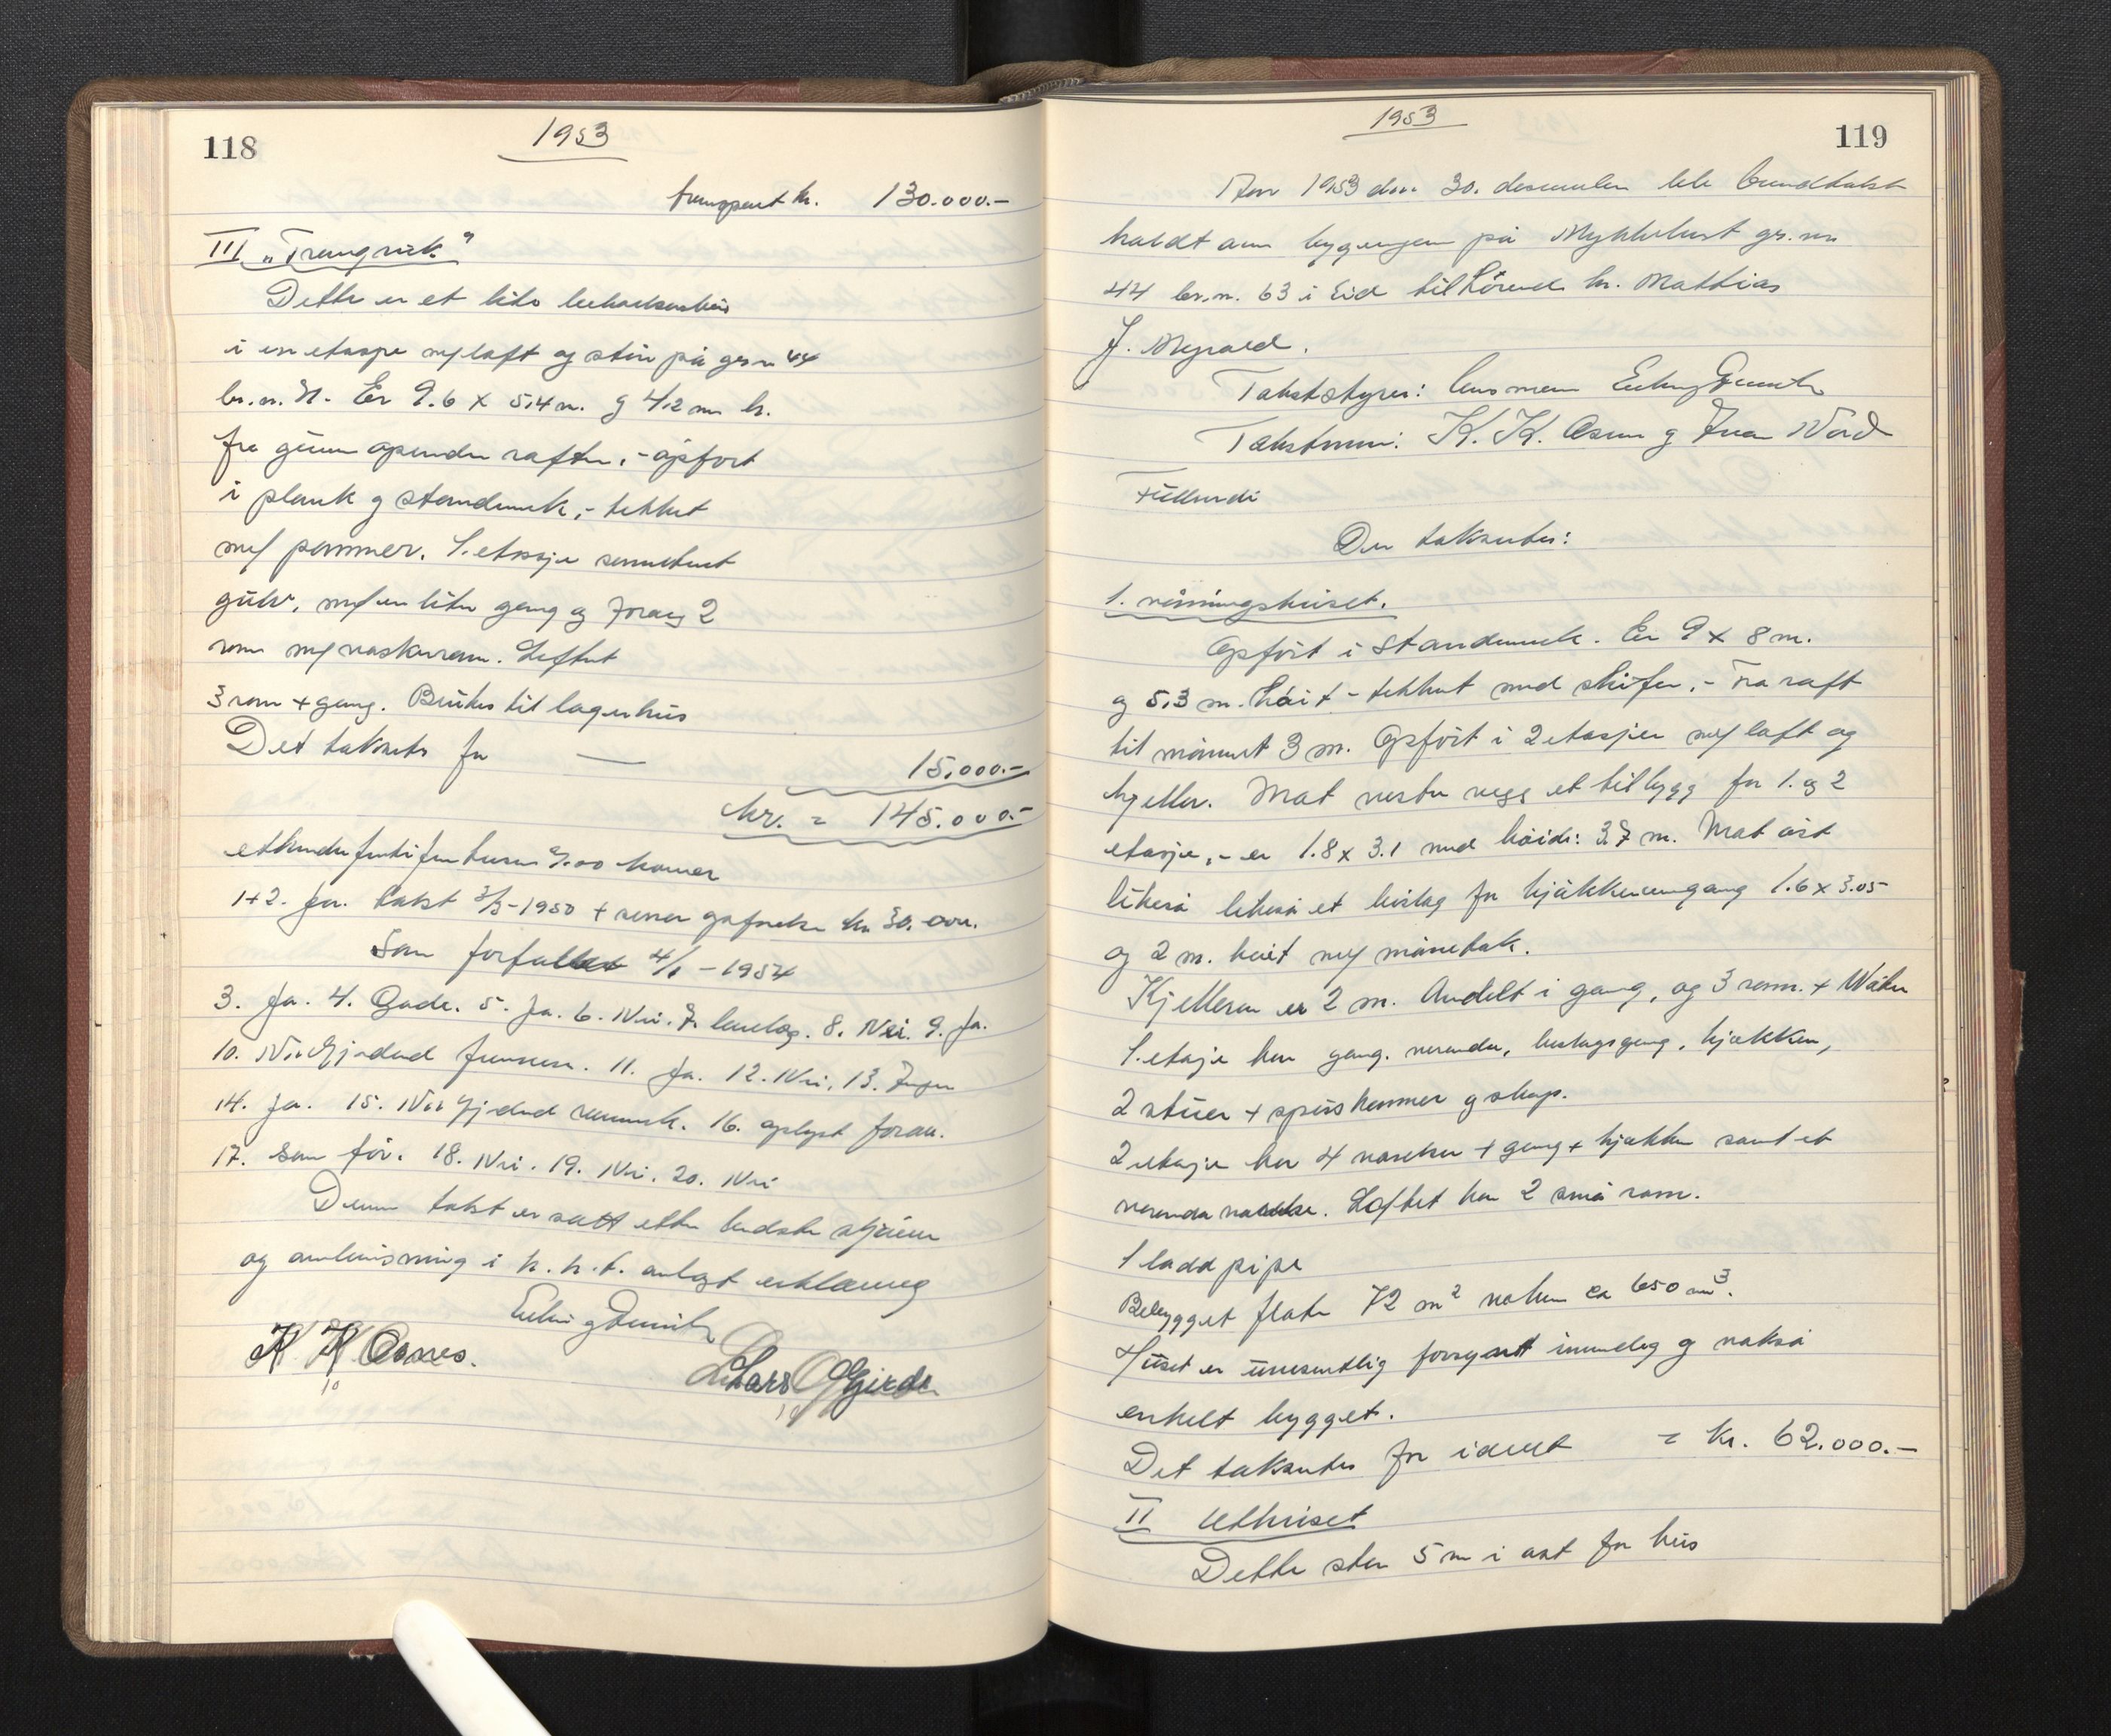 118
1953
transport kr. 130.000.-
III "Trangvik"
Dette er et lite
i en etasje m/ loft og står på grn 44
br.n. Er 9.6 X 5.4 m. og 4.2 m h.
fra grunn raften, - opført
i plank og standverk, - tekket
m/ panner. 1. etasje
gulv, m/ en liten gang og 2
rom m/ vaskerom. Loftet
3 rom + gang. Brukes til lagerhus
Det takseres for — 15.000.-
kr. = 145.000.-
etthundre førtifem tusen 0/00 kroner
1+2. Ja. takst 3/5-1950 + kr 30.000.
Som forfallet 4/1 - 1954
3. Ja. 4. Gode. 5. Ja. 6. Nei. 7. 8. Nei. 9. Ja.
10. 11. Ja. 12. Nei. 13. Ingen
14. Ja. 15. 16. oplyst foran.
17. Som før. 18. Nei. 19. Nei. 20. Nei
Denne takst er satt etter bedste skjønn
og overbevisning i h. h. t. avlagt erklæring
K. K. Osnes.
Lars O Gjerde
1953
119
Aar 1953 den 30. desember ble branntakst
holdt over bygningene på Myklebust gr. nr
44 br.n. 63 i Eid tilhörende hr. Mattias
J. Myrold.
Takststyrer: lensmann
Takstmenn: K. K. Osnes og Ivar Nord
Fullverdi
Der takseres:
1. våningshuset.
Opført i standverk. Er 9 x 8 m.
og 5.3 m. høit - tekket med skifer. - Fra raft
til mönnet 3 m. Opført i 2 etasjer m/ loft og
kjeller. Mot vestre vegg et tilbygg for 1. og 2
etasje, - er 1.8 x 3.1 med höide: 3.7 m. Mot öst
likeså likeså et bislag for kjøkkeninngang 1.6 x 3.05
og 2 m. høit m/ mönetak.
Kjelleren er 2 m. Avdelt i gang, og 3 rom.
1. etasje har gang, veranda, bislagsgang, kjøkken,
2 stuer + spiskammer og skap.
2 etasje har 4 værelser + gang + kjøkken samt et
veranda værelse. Loftet har 2 små rom.
1 ladd pipe
Bebygget flate 72 m² volum ca 650 m³.
Huset er uvesentlig forsynt innvendig og också
enkelt bygget.
Det takseres for idvert = kr. 62.000.-
II Uthuset
Dette står 5 m i öst for hus